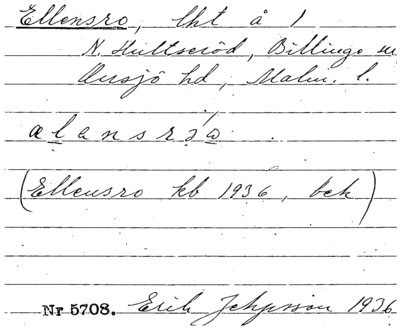 Ellensro, lht å 1
N. Hultseröd, Billinge sn
Onsjö hd, Malm. l.
ælansró
(Ellensro kb 1936, bek)
Nr 5708. Erik Jeppsson 1936